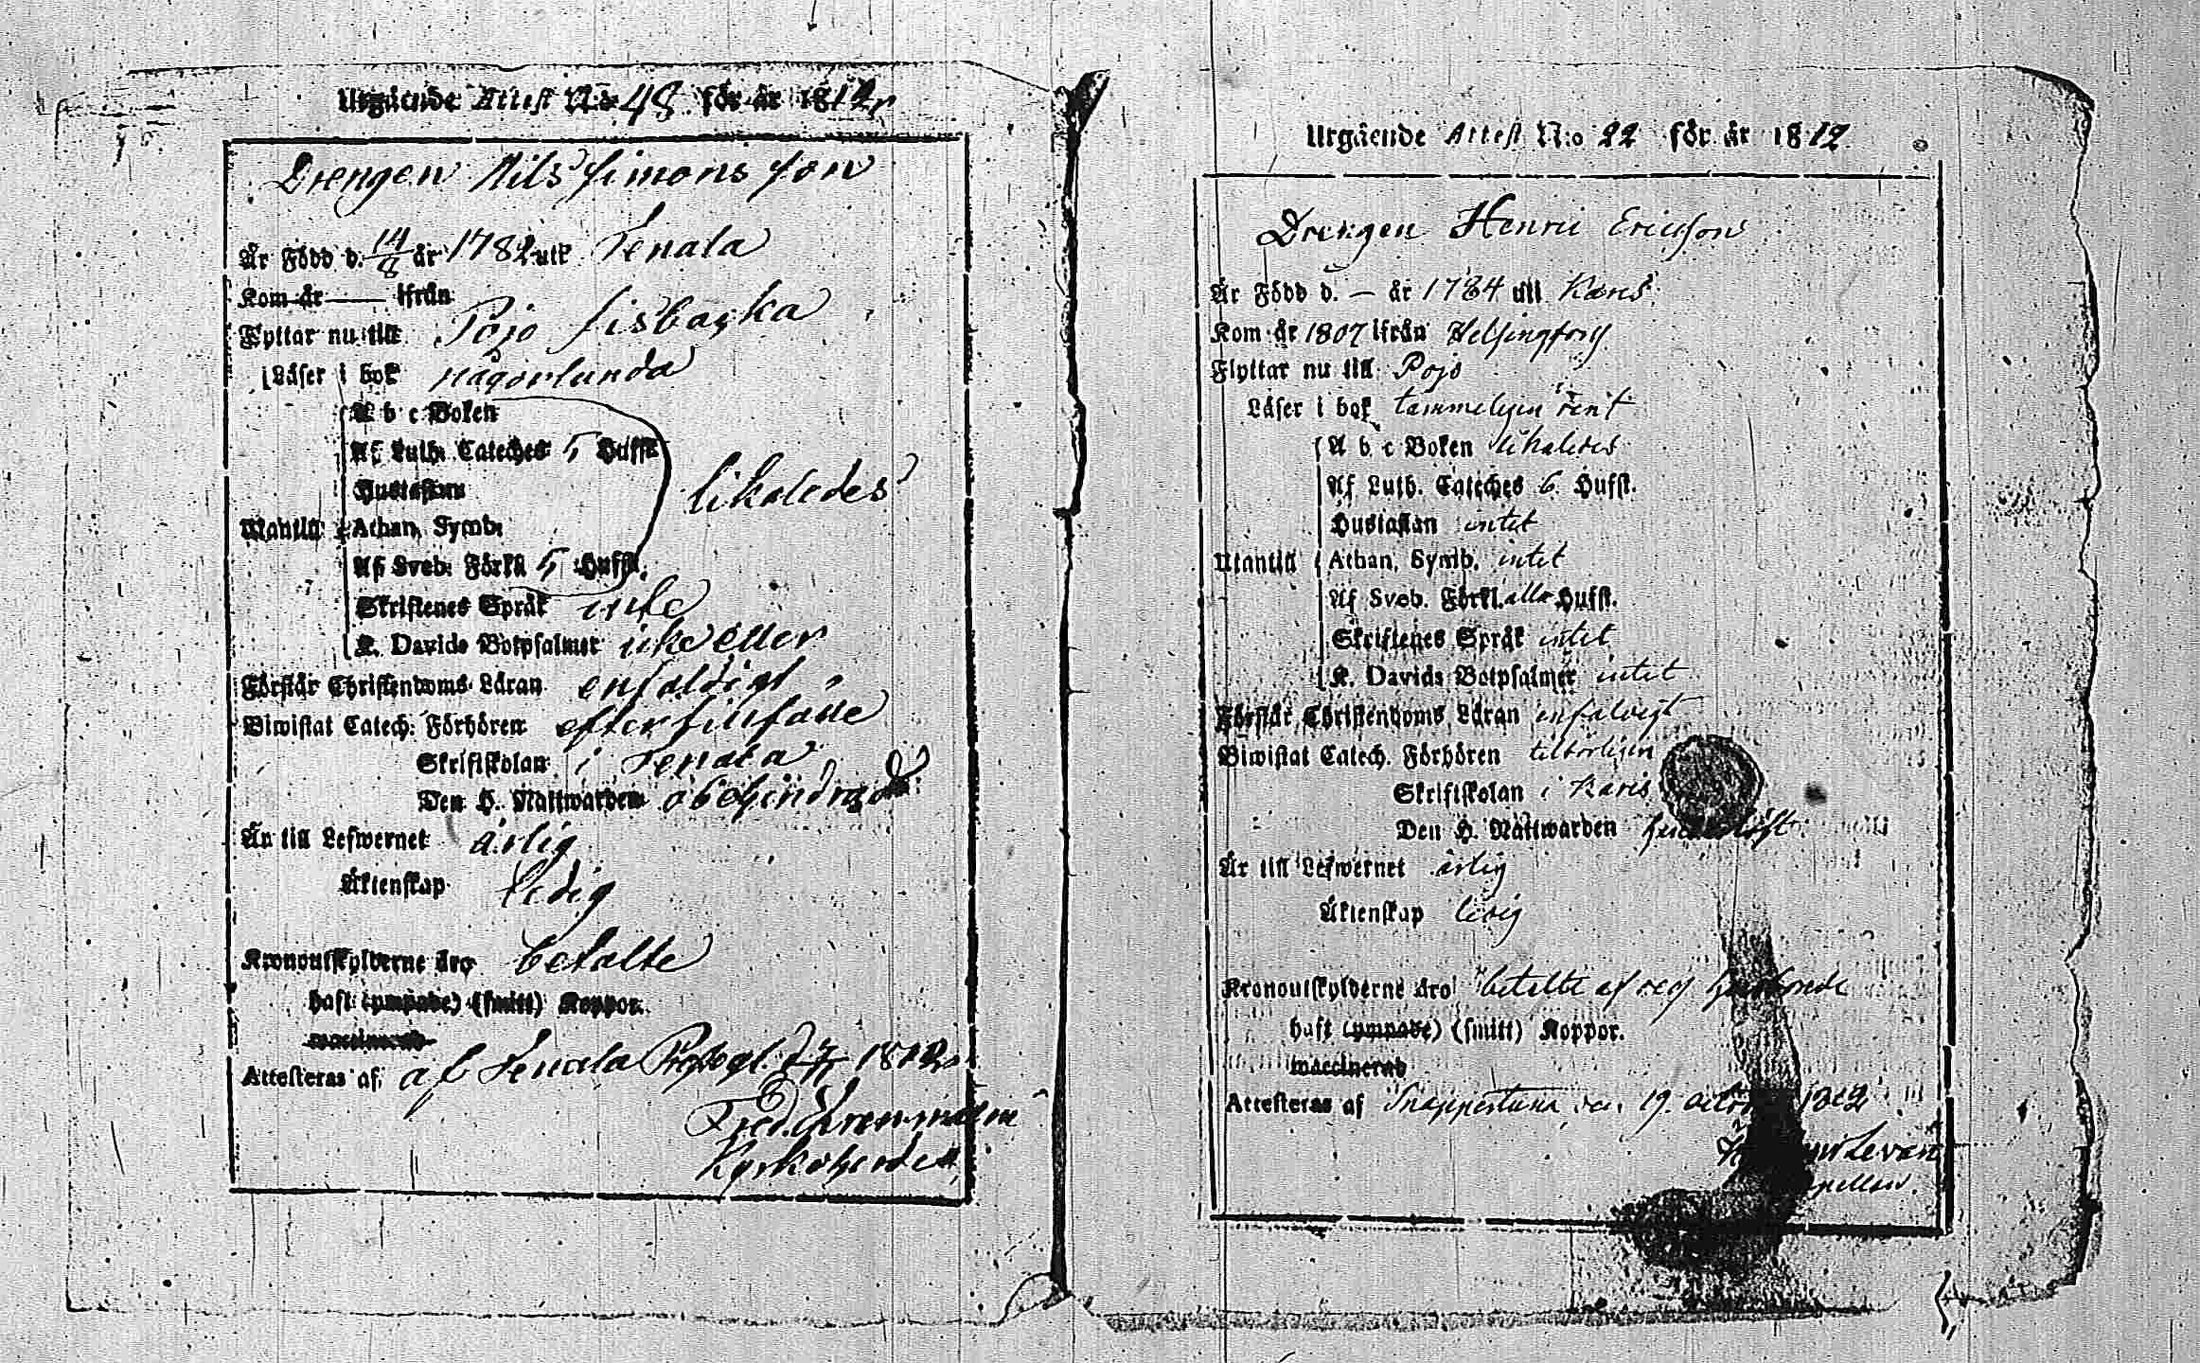 Utgående Attest N:o 48 för år 1812
Drengen Nils Simonsson
Är Född d. 14/8 år 1782 uti Tenala
Kom år — ifrån
Flyttar nu till Pojo Fisbacka
Läser i bok någorlunda
A b c Boken
Af Luth. Cateches 5 Hufst.
Hustaflan
likaledes
Utantill Athan. Symb.
Af Sveb. Förkl. 5 Hufst.
Skriftenes Språk inte
K. Davids Botpsalmer icke eller
Förstår Christendoms Läran enfaldigt
Biwistat Catech. Förhören efter tillfälle
Skriftskolan i Tenala
Den H. Nattwarden obehindrad
Än till Lefwernet ärlig
Äktenskap ledig
Kronoutskylderne äro betalte
haft (ympade) (smitt) Koppor.
waccinerad
Attesteras af af Tenala 1812
Fred.
Kyrkoherde
Utgående Attest N:o 22 för år 1812
Drengen Henric Ericsson
Är Född d. — år 1784 till Karis
Kom år 1807 ifrån Helsingfors
Flyttar nu till Pojo
Läser i bok tammeligen rent
A b c Boken likaledes
Af Luth. Cateches 6 Hufst.
Hustaflan intet
Utantill Athan. Symb. intet
Af Sveb. Förkl. alla Hufst.
Skriftenes Språk intet
K. Davids Botpsalmer intet
Förstår Christendoms Läran enfaldigt
Biwistat Catech. Förhören tilbörligen
Skriftskolan i Karis
Den H. Nattwarden
Är till Lefwernet ärlig
Äktenskap ledig
Kronoutskylderne äro betalte af
haft (ympade) (smitt) Koppor.
waccinerad
Attesteras af Snappertuna den 19. 1812